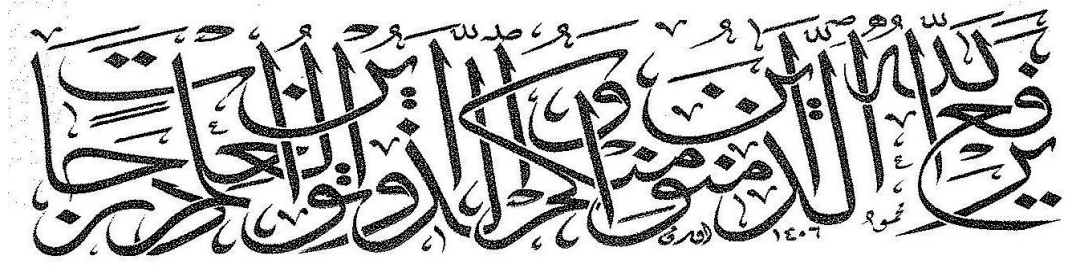 يَرْفَعِ اللَّهُ الَّذِينَ آمَنُوا مِنْكُمْ وَالَّذِينَ أُوتُوا الْعِلْمَ دَرَجَاتٍ
محمود ١٤٠٦